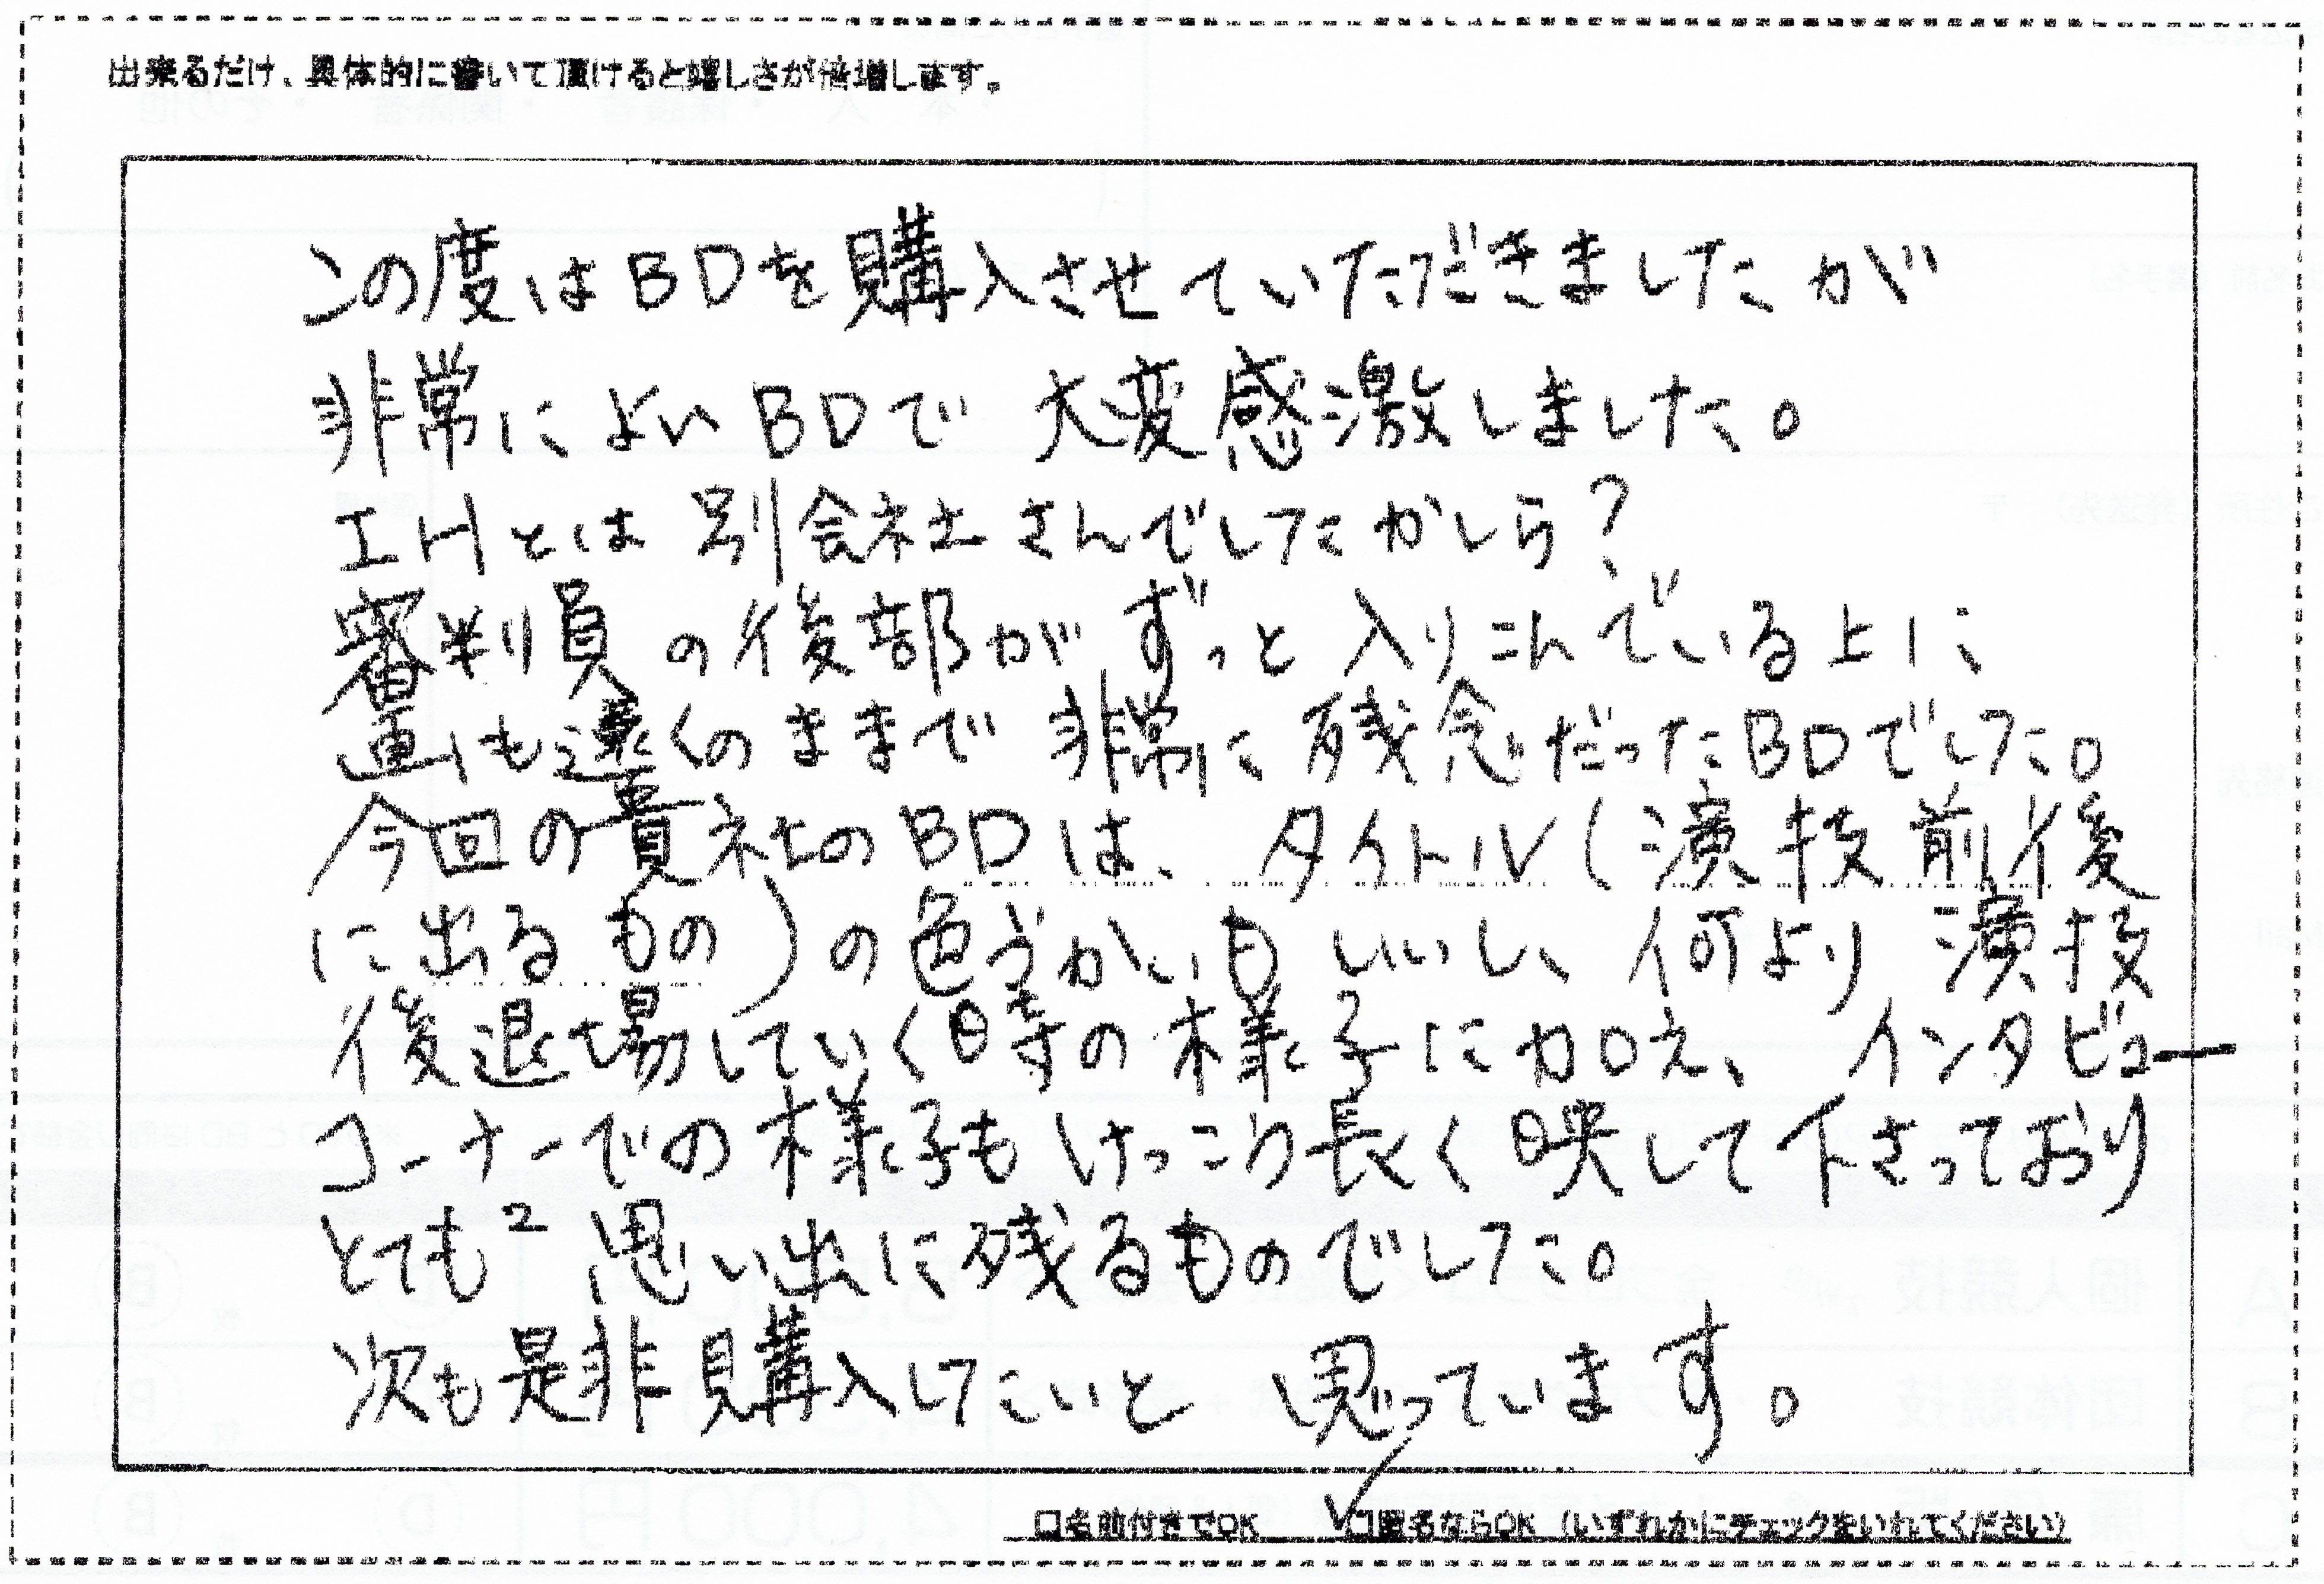 出来るだけ、具体的に書いて頂けると嬉しさが倍増します。
この度はBDを購入させていただきましたが
非常によいBDで 大変感激しました。
エHとは 別会社さんでしたかしら?
審判員の後部がずっと入りこんでいる上に
画も遠くのままで 非常に残念だったBDでした。
今回の貴社のBDは、タイトル(演技前後
に出るもの)の色づかいもいいし、何より演技
後退場していく時の様子に加え、インタビュー
コーナーでの様子もけっこう長く映して下さっており
とても² 思い出に残るものでした。
次も是非購入したいと 思っています。
□名前付きでOK ✓□匿名ならOK (いずれかにチェックをいれてください)